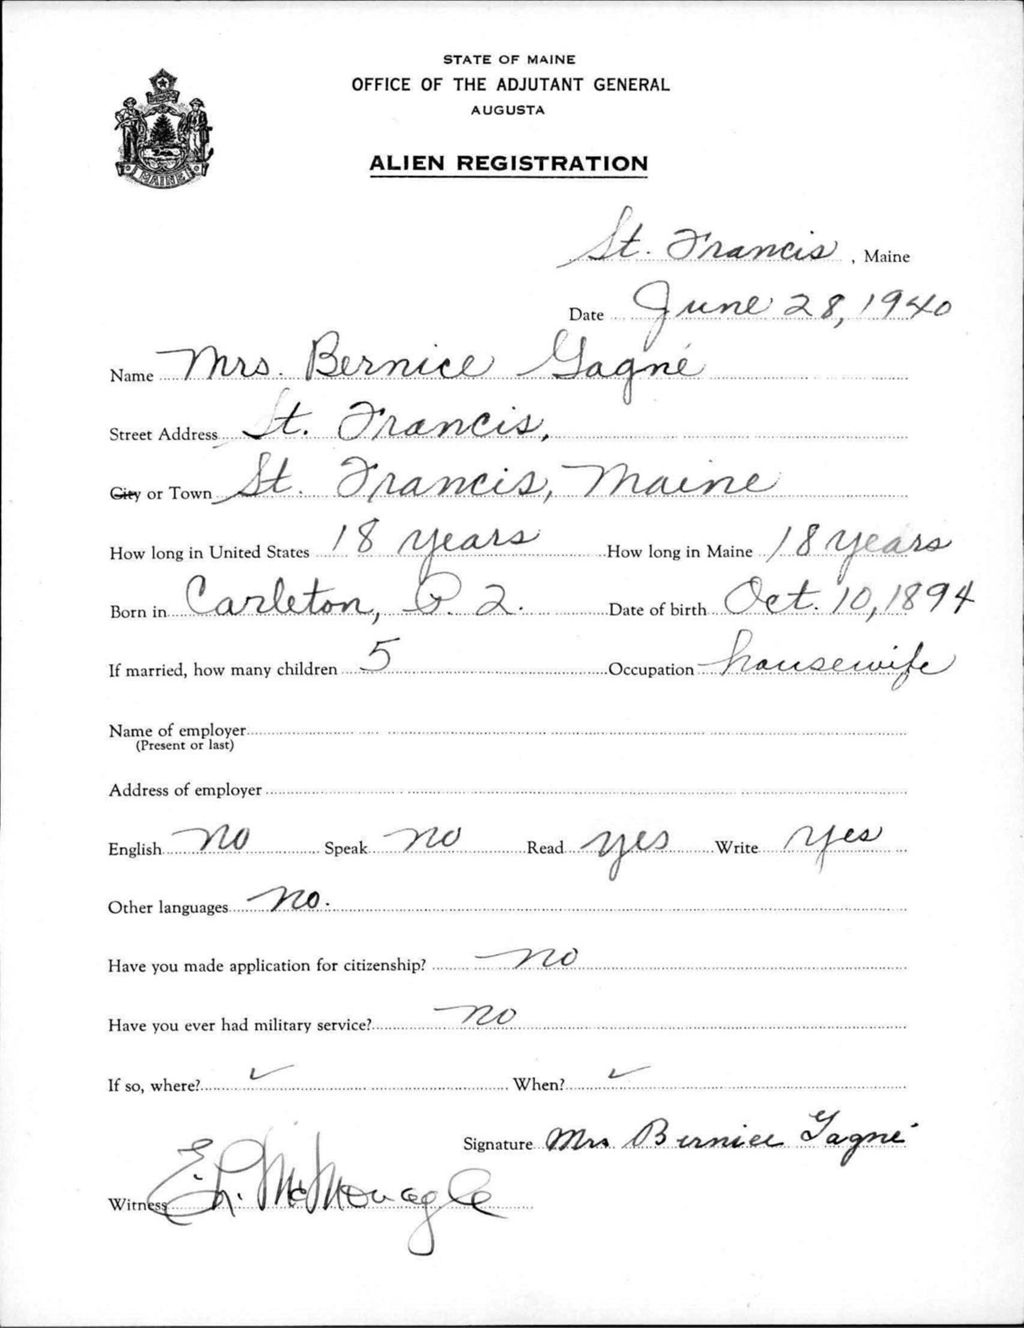 STATE OF MAINE
OFFICE OF THE ADJUTANT GENERAL
AUGUSTA
ALIEN REGISTRATION
MAINE
St. Francis, Maine
Date June 28, 1940
Name Mrs. Bernice Gagné
Street Address St. Francis,
City or Town St. Francis, Maine
How long in United States 18 years How long in Maine 18 years
Born in Carleton, P. 2. Date of birth Oct. 10, 1894
If married, how many children 5 Occupation housewife
Name of employer
(Present or last)
Address of employer
English no Speak no Read yes Write yes
Other languages no.
Have you made application for citizenship? no
Have you ever had military service? no
If so, where? ✓ When? ✓
Signature Mrs Bernice Gagné
Witness E. L. McMonagle